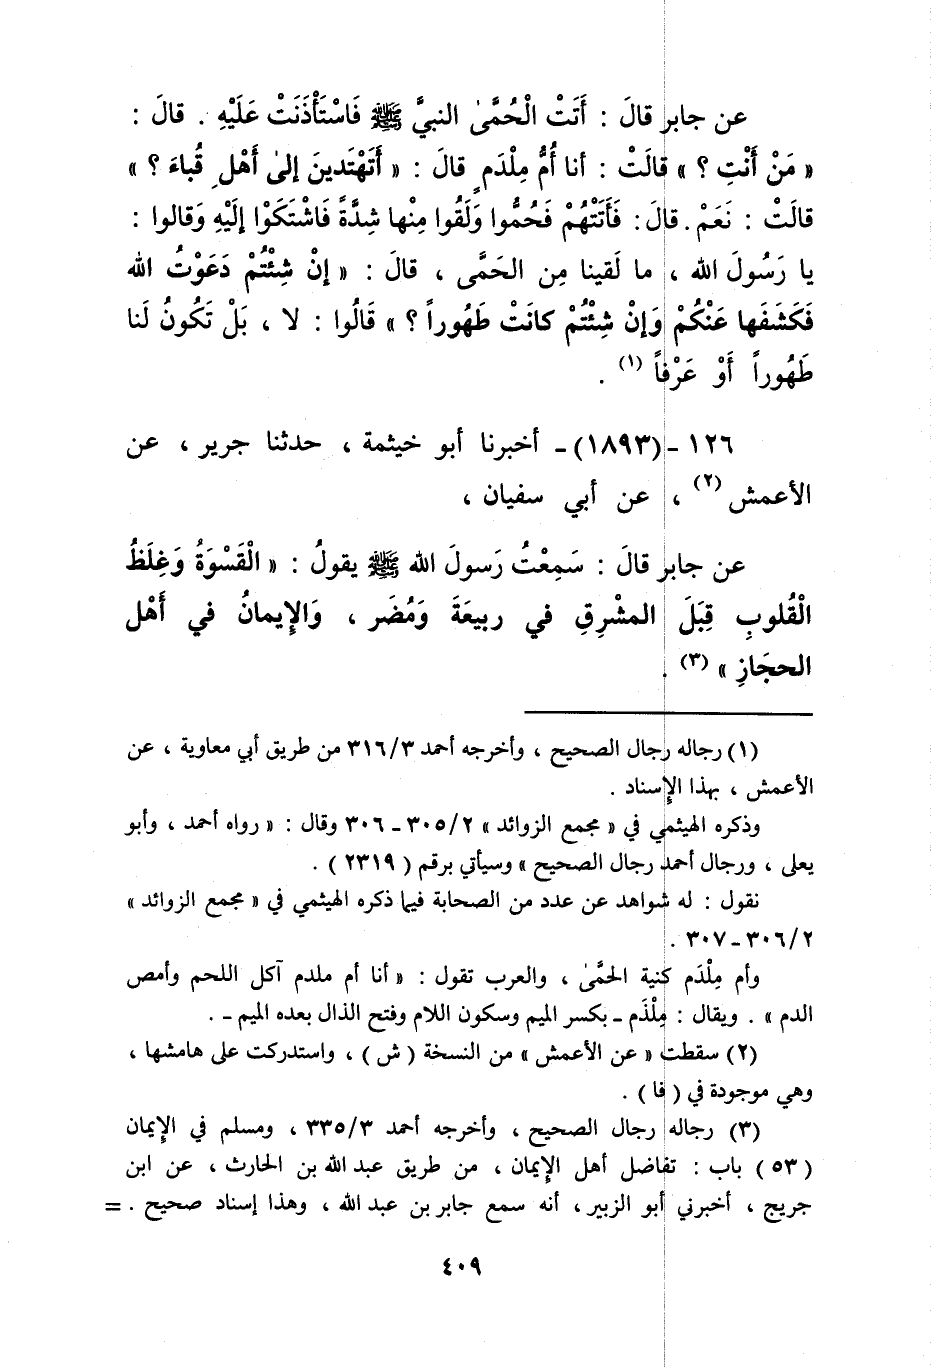 عن جابر قالَ : أَتَتْ الْحُمَّىٰ النبيَّ ﷺ فَاسْتَأْذَنَتْ عَلَيْهِ . قالَ :
« مَنْ أَنْتِ ؟ » قالَتْ : أنا أُمُّ مِلْدَمٍ قالَ : « أَتَهْتَدينَ إلىٰ أَهْلِ قُباءَ ؟ »
قالَتْ : نَعَمْ . قالَ : فَأَتَتْهُمْ فَحُمُّوا وَلَقُوا مِنْها شِدَّةً فَاشْتَكَوْا إلَيْهِ وَقالوا :
يا رَسُولَ الله ، ما لَقينا مِن الحَمَّى ، قالَ : « إنْ شِئْتُمْ دَعَوْتُ الله
فَكَشَفَها عَنْكُمْ وَإنْ شِئْتُمْ كانَتْ طَهُوراً ؟ » قَالُوا : لا ، بَلْ تَكُونُ لَنا
طَهُوراً أَوْ عَرْفاً (١) .
١٢٦ - (١٨٩٣) - أخبرنا أبو خيثمة ، حدثنا جرير ، عن
الأعمش (٢) ، عن أبي سفيان ،
عن جابر قالَ : سَمِعْتُ رَسولَ الله ﷺ يقولُ : « الْقَسْوَةُ وَغِلَظُ
الْقُلوبِ قِبَلَ المشْرِقِ في ربيعَةَ وَمُضَر ، وَالإيمانُ في أَهْل
الحجَازِ » (٣) .
(١) رجاله رجال الصحيح ، وأخرجه أحمد ٣١٦/٣ من طريق أبي معاوية ، عن
الأعمش ، بهذا الإسناد .
وذكره الهيثمي في « مجمع الزوائد » ٣٠٥/٢ - ٣٠٦ وقال : « رواه أحمد ، وأبو
يعلى ، ورجال أحمد رجال الصحيح » وسيأتي برقم ( ٢٣١٩ ) .
نقول : له شواهد عن عدد من الصحابة فيما ذكره الهيثمي في « مجمع الزوائد »
٣٠٦/٢ - ٣٠٧ .
وأم مِلْدَم كنية الحمَّىٰ ، والعرب تقول : « أنا أم ملدم آكل اللحم وأمص
الدم » . ويقال : مِلْذَم - بكسر الميم وسكون اللام وفتح الذال بعده الميم - .
(٢) سقطت « عن الأعمش » من النسخة ( ش ) ، واستدركت على هامشها ،
وهي موجودة في ( فا ) .
(٣) رجاله رجال الصحيح ، وأخرجه أحمد ٣٣٥/٣ ، ومسلم في الإيمان
( ٥٣ ) باب : تفاضل أهل الإيمان ، من طريق عبد الله بن الحارث ، عن ابن
جريج ، أخبرني أبو الزبير ، أنه سمع جابر بن عبد الله ، وهذا إسناد صحيح . =
٤٠٩